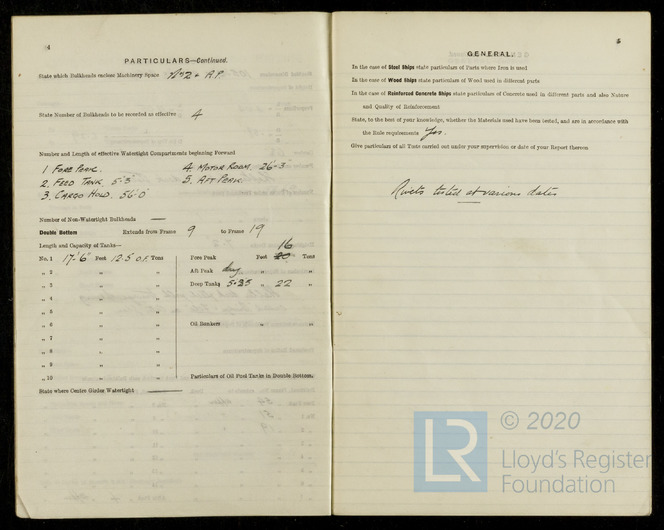 4
PARTICULARS—Continued.
State which Bulkheads enclose Machinery Space No 2 + A.P.
State Number of Bulkheads to be recorded as effective 4
Number and Length of effective Watertight Compartments beginning Forward
1 FORE PEAK. 4. MOTOR ROOM. 26'-3"
2. FEED TANK. 5'-3" 5. AFT PEAK
3. CARGO HOLD. 56'-0"
Number of Non-Watertight Bulkheads —
Double Bottom Extends from Frame 9 to Frame 19
Length and Capacity of Tanks—
No. 1 17'-6" Feet 12.5 O.F. Tons Fore Peak Feet 20 16 Tons
„ 2 „ „ Aft Peak dry „ „
„ 3 „ „ Deep Tanks 5.25 „ 22 „
„ 4 „ „
„ 5 „ „
„ 6 „ „ Oil Bunkers „ „
„ 7 „ „
„ 8 „ „
„ 9 „ „
„ 10 „ „ Particulars of Oil Fuel Tanks in Double Bottom.
State where Centre Girder Watertight —
5
GENERAL.
In the case of Steel Ships state particulars of Parts where Iron is used
In the case of Wood Ships state particulars of Wood used in different parts
In the case of Reinforced Concrete Ships state particulars of Concrete used in different parts and also Nature
and Quality of Reinforcement
State, to the best of your knowledge, whether the Materials used have been tested, and are in accordance with
the Rule requirements Yes.
Give particulars of all Tests carried out under your supervision or date of your Report thereon
Rivets tested at various dates
LR
© 2020
Lloyd's Register
Foundation